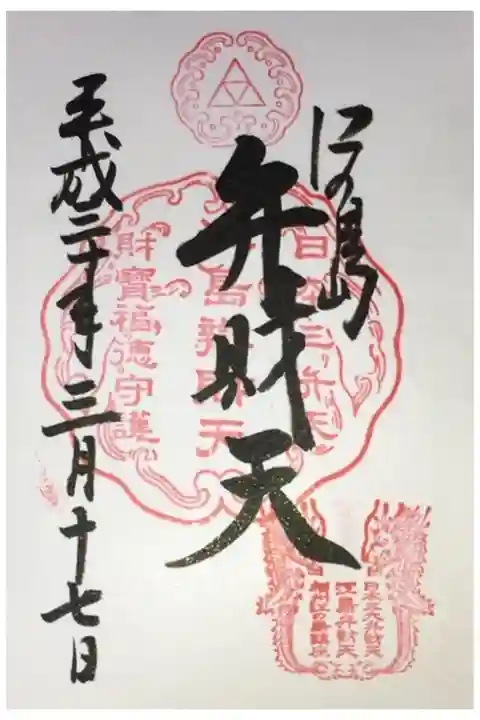 江の島
弁財天
平成三十年三月十七日
日本三弁天
江島辨財天
財寶福徳守護
日本三大弁財天
江島弁財天